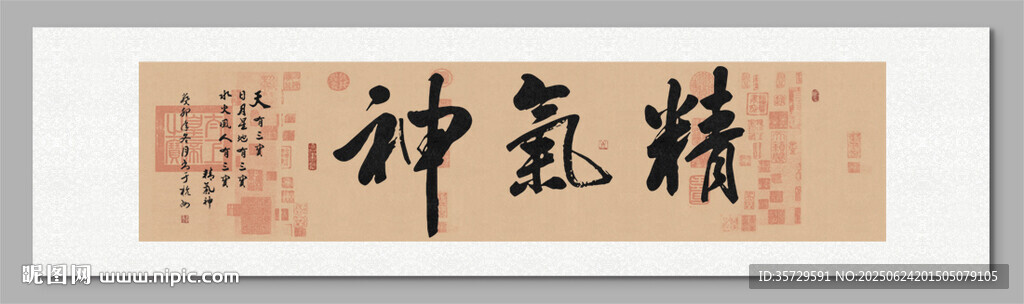 精氣神
天有三寶
日月星地有三寶
水火風人有三寶
精氣神
癸卯年冬月書于杭州
昵图网 www.nipic.com
ID:35729591 NO:20250624201505079105